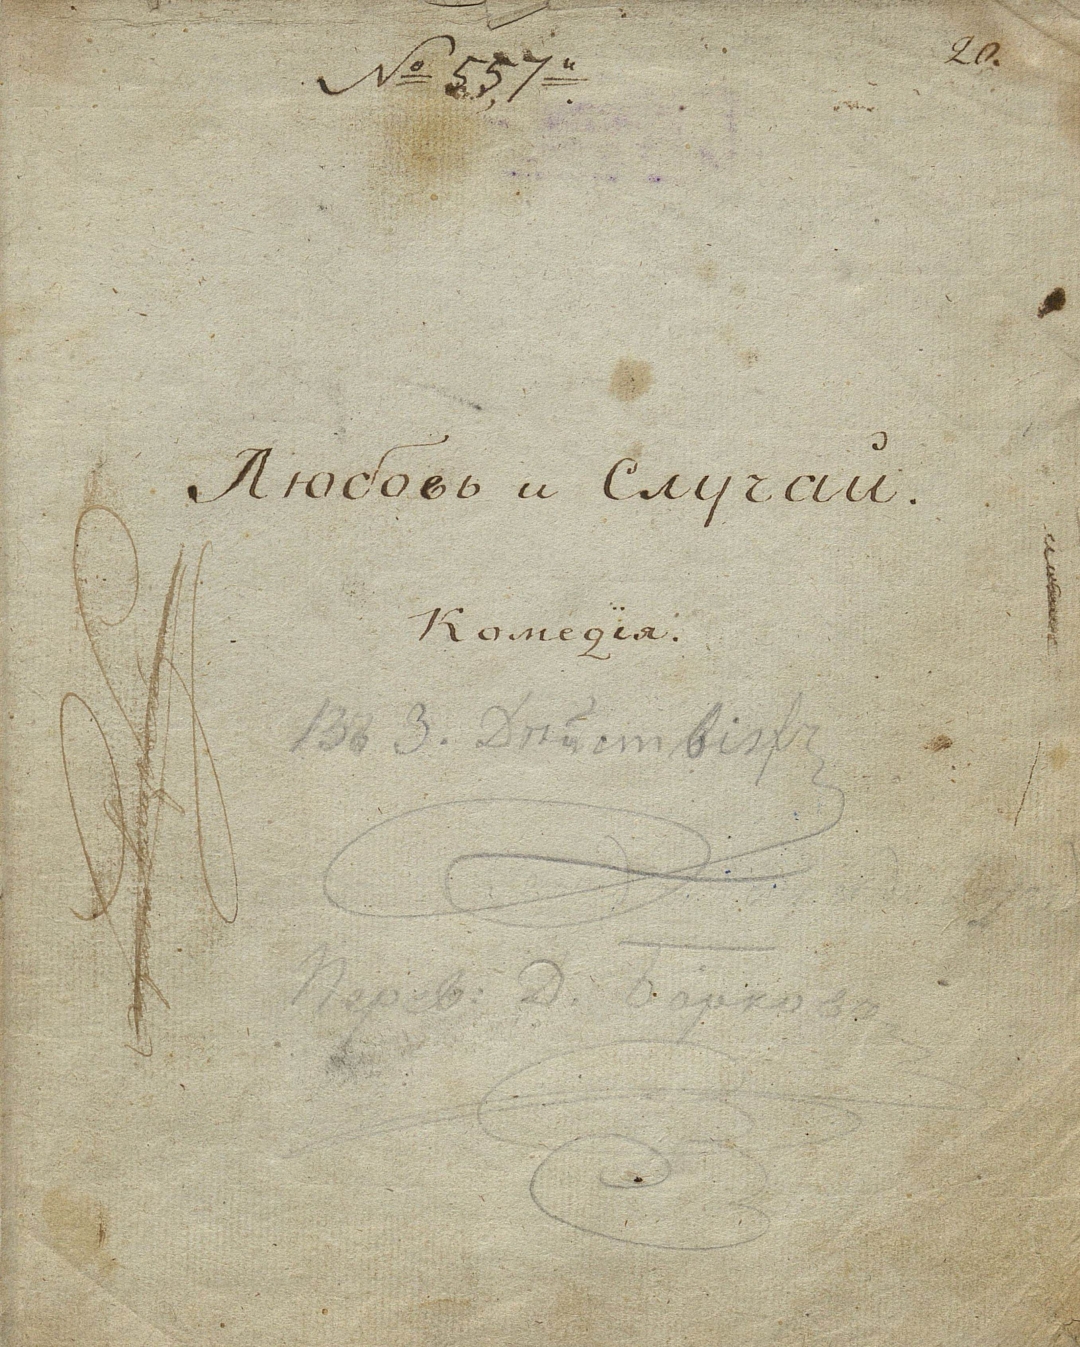 № 557й 20.
Любовь и Случай.
Комедія.
Въ 3. Дѣйствіяхъ
Перев: Д. Баркова